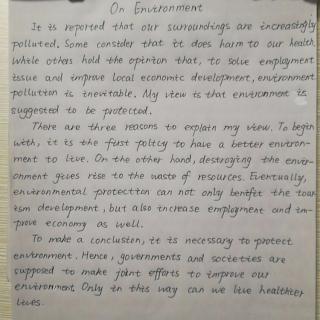 On Environment
It is reported that our surroundings are increasingly
polluted. Some consider that it does harm to our health,
while others hold the opinion that, to solve employment
issue and improve local economic development, environment
pollution is inevitable. My view is that environment is
suggested to be protected.
There are three reasons to explain my view. To begin
with, it is the first policy to have a better environ-
ment to live. On the other hand, destroying the envir-
onment gives rise to the waste of resources. Eventually,
environmental protection can not only benifit the tour-
ism development, but also increase employment and im-
prove economy as well.
To make a conclusion, it is necessary to protect
environment. Hence, governments and societies are
supposed to make joint efforts to improve our
environment. Only in this way can we live healthier
lives.